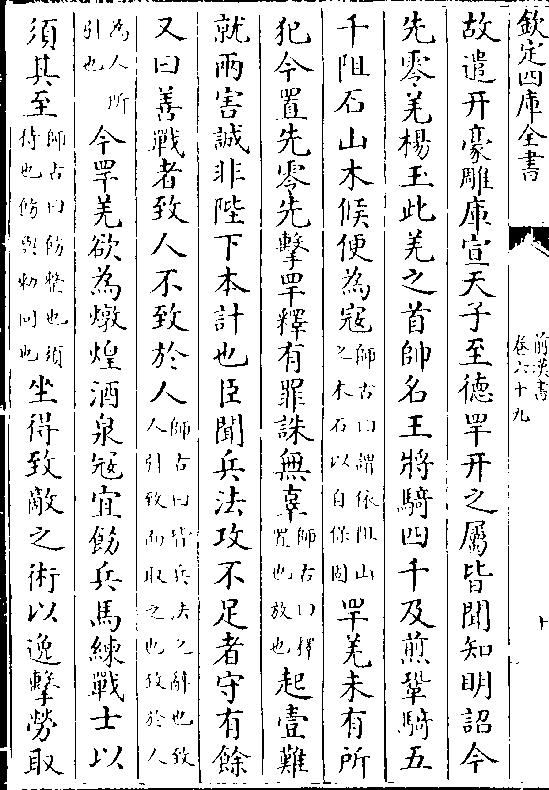 欽定四庫全書
前漢書
卷六十九
十
故遣幵豪雕庫宣天子至德䍐幵之屬皆聞知明詔今
先零羌楊玉此羌之首帥名王將騎四千及煎鞏騎五
千阻石山木候便為冦師古曰謂依阻山之木石以自保固䍐羌未有所
犯今置先零先擊䍐釋有罪誅無辜師古曰釋置也放也起壹難
就兩害誠非陛下本計也臣聞兵法攻不足者守有餘
又曰善戰者致人不致於人師古曰皆兵法之辭也致人引致而取之也致於人
為人所引也今䍐羌欲為燉煌酒泉冦宜飭兵馬練戰士以
須其至師古曰飭整也須待也飭與勑同也坐得致敵之術以逸擊勞取